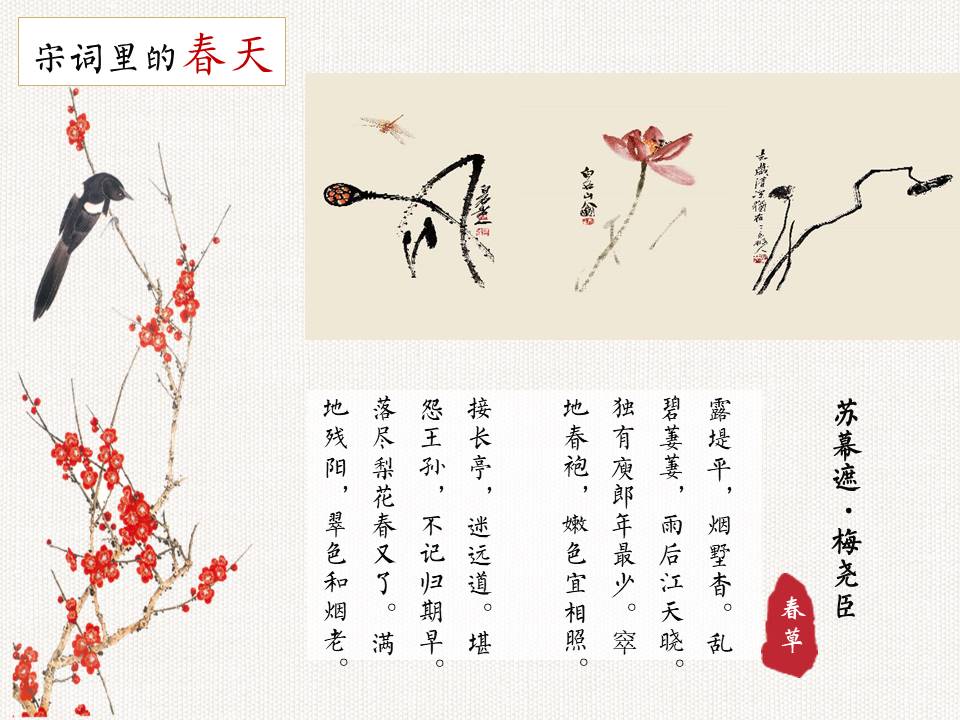 宋词里的春天
白石山翁
苏幕遮·梅尧臣
春草
露堤平，烟墅杳。乱
碧萋萋，雨后江天晓。
独有庾郎年最少。窣
地春袍，嫩色宜相照。
接长亭，迷远道。堪
怨王孙，不记归期早。
落尽梨花春又了。满
地残阳，翠色和烟老。